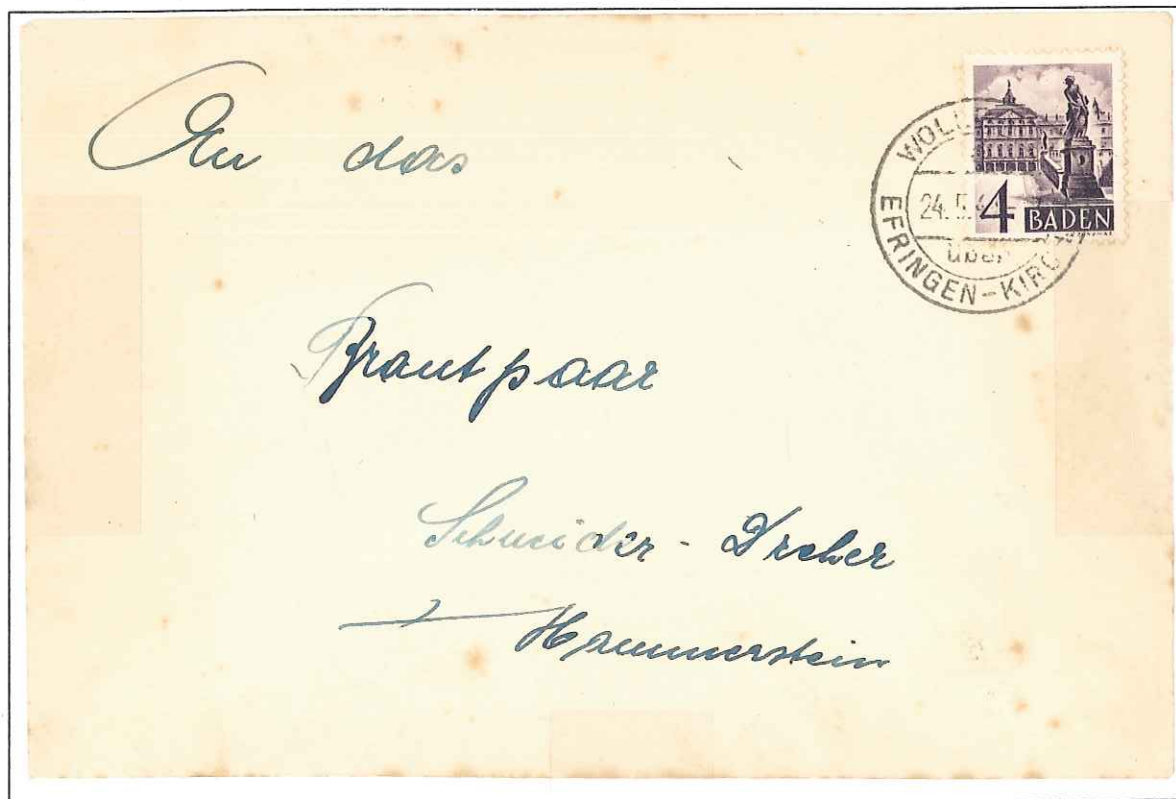 An das
Brautpaar
Schneider - Dreher
Hammerstein
24.5.
über
EFRINGEN-KIRC
4
BADEN